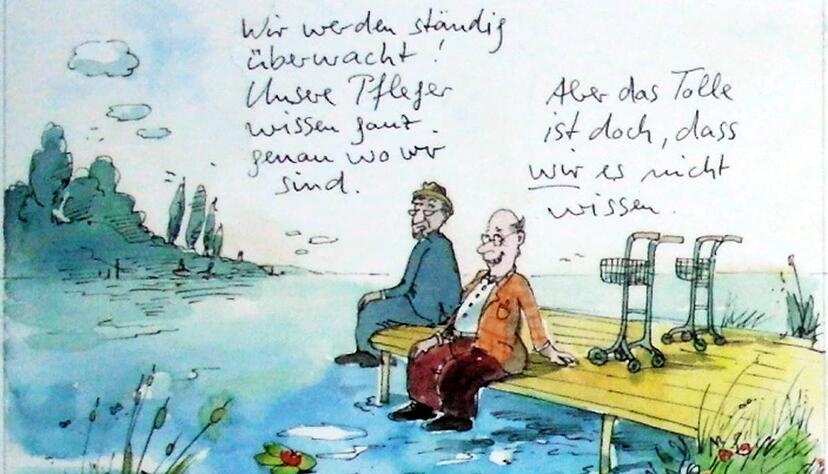 Wir werden ständig
überwacht!
Unsere Pfleger
wissen ganz
genau wo wir
sind.
Aber das Tolle
ist doch, dass
wir es nicht
wissen.